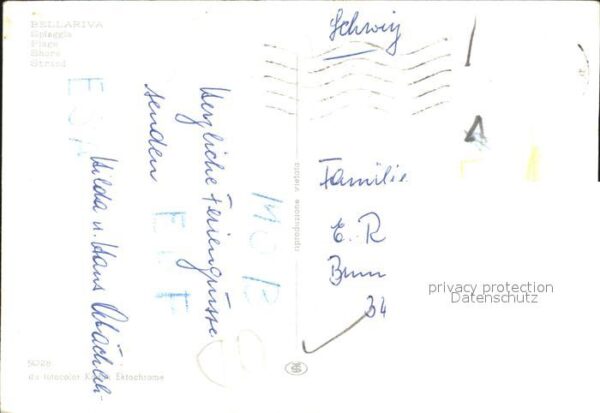 BELLARIVA
Spiaggia
Plage
Shore
Strand
Schweiz
Herzliche Feriengrüsse
senden
Hilda u. Hans
Familie
E. R
34
privacy protection
Datenschutz
riproduzione vietata
5028
da fotocolor Kodak Ektachrome